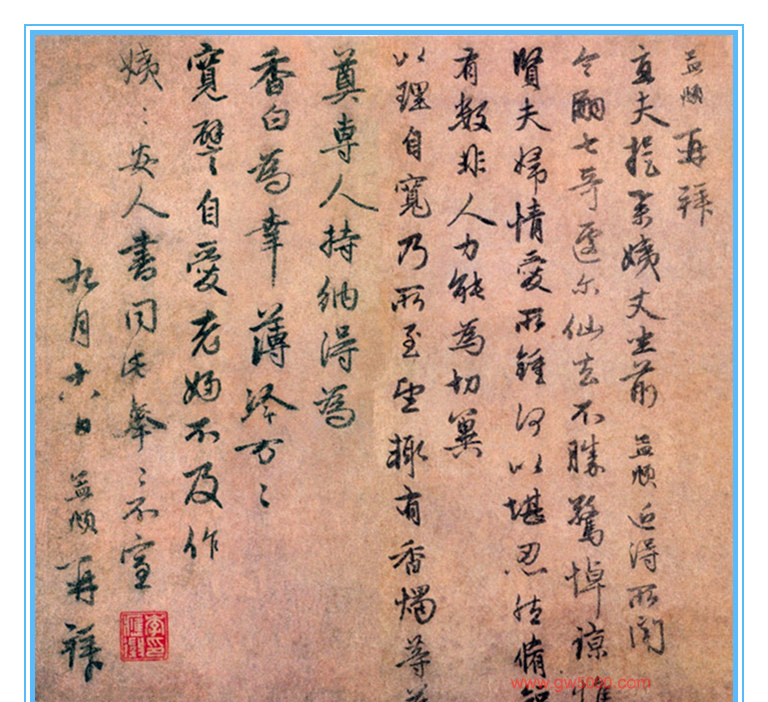 孟頫再拜
直夫提舉姨丈坐前孟頫近得所聞
令嗣七哥遽尔仙去不勝驚悼諒惟
賢夫婦情愛所鍾何以堪忍然脩短
有數非人力能為切冀
以理自寬乃所至望輙有香燭等
奠專人持納得為
香白為幸薄冷万〻
寬譬自愛老婦不及作
姨〻安人書同此拳〻不宣
九月十六日孟頫再拜
www.gw5000.com